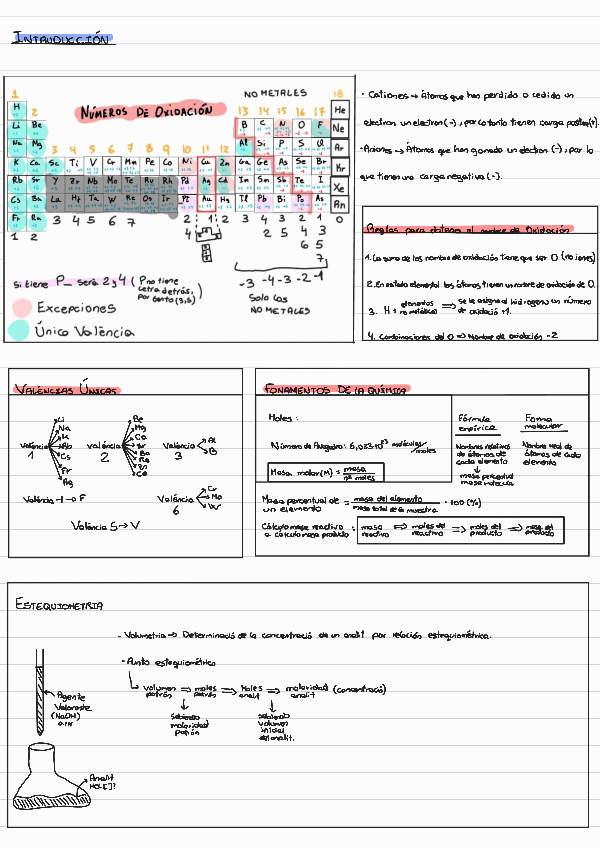 INTRODUCCIÓN
1
18
NO METALES
NÚMEROS DE OXIDACIÓN
H
2
13 14 15 16 17
He
Li Be
B C N O F
Ne
Na Mg
3 4 5 6 7 8 9 10 11 12
Al Si P S Cl
Ar
K Ca Sc Ti V Cr Mn Fe Co Ni Cu Zn Ga Ge As Se Br
Kr
Rb Sr Y Zr Nb Mo Te Ru Rh Pd Ag Cd In Sm Sb Te I
Xe
Cs Ba La Hf Ta W Re Os Ir Pt Au Hg Tl Pb Bi Po As
Rn
Fr Ra 3 4 5 6 7 2 1 2 3 4 3 2 1 0
1 2 4 2 5 4 3
6 5
7
-3 -4 -3 -2 -1
Solo los
NO METALES
Si tiene P_ será 2 y 4 (P no tiene
letra detrás,
por tanto (3,5)
Excepciones
Único Valéncia
· Cationes → Átomos que han perdido o cedido un
electron un electron (-), por lo tanto tienen carga positiva(+).
· Aniones → Átomos que han ganado un electron (-), por lo
que tienen una carga negativa (-).
Reglas para obtener el nombre de Oxidación
1. La suma de los nombres de oxidación tiene que ser 0 (no iones)
2. En estado elemental los átomos tienen un nombre de oxidación de 0.
3. H + elementos no metálicos ⇒ Se le asigna al hidrogeno un número
de oxidació +1.
4. Combinaciones del O ⇒ Nombre de oxidación -2
VALÉNCIAS ÚNICAS
Valéncia 1
Li
Na
K
Rb
Cs
Fr
Ag
Valéncia 2
Be
Mg
Ca
Sr
Ba
Ra
Zn
Cd
Valéncia 3
Al
B
Valéncia -1 → F
Valéncia 6
Cr
Mo
W
Valéncia 5 → V
FONAMENTOS DE LA QUÍMICA
Moles:
Número de Avogadro: 6,023·10²³ molécules/moles
Masa molar(M) = masa / nº moles
Fórmula
empírica
Nombres relativos
de átomos de
cada elemento
↓
masa percentual
masa molecular
Forma
molecular
Nombre real de
átomos de cada
elemento
Masa percentual de un elemento = masa del elemento / masa total de la muestra · 100 (%)
Cálculo masa reactivo a cálculo masa producto : masa reactivo ⇒ moles del reactivo ⇒ moles del producto ⇒ masa del producto
ESTEQUIOMETRIA
- Volumetria → Determinació de la concentració de un analit por relación estequiométrica.
· Punto estequiométrico
volumen patrón ⇒ moles patrón ⇒ Moles analit ⇒ molaridad (concentració) analit
sabiendo
molaridad
patrón
sabiendo
volumen
inicial
del analit.
Agente
Valorante
(NaOH)
Analit